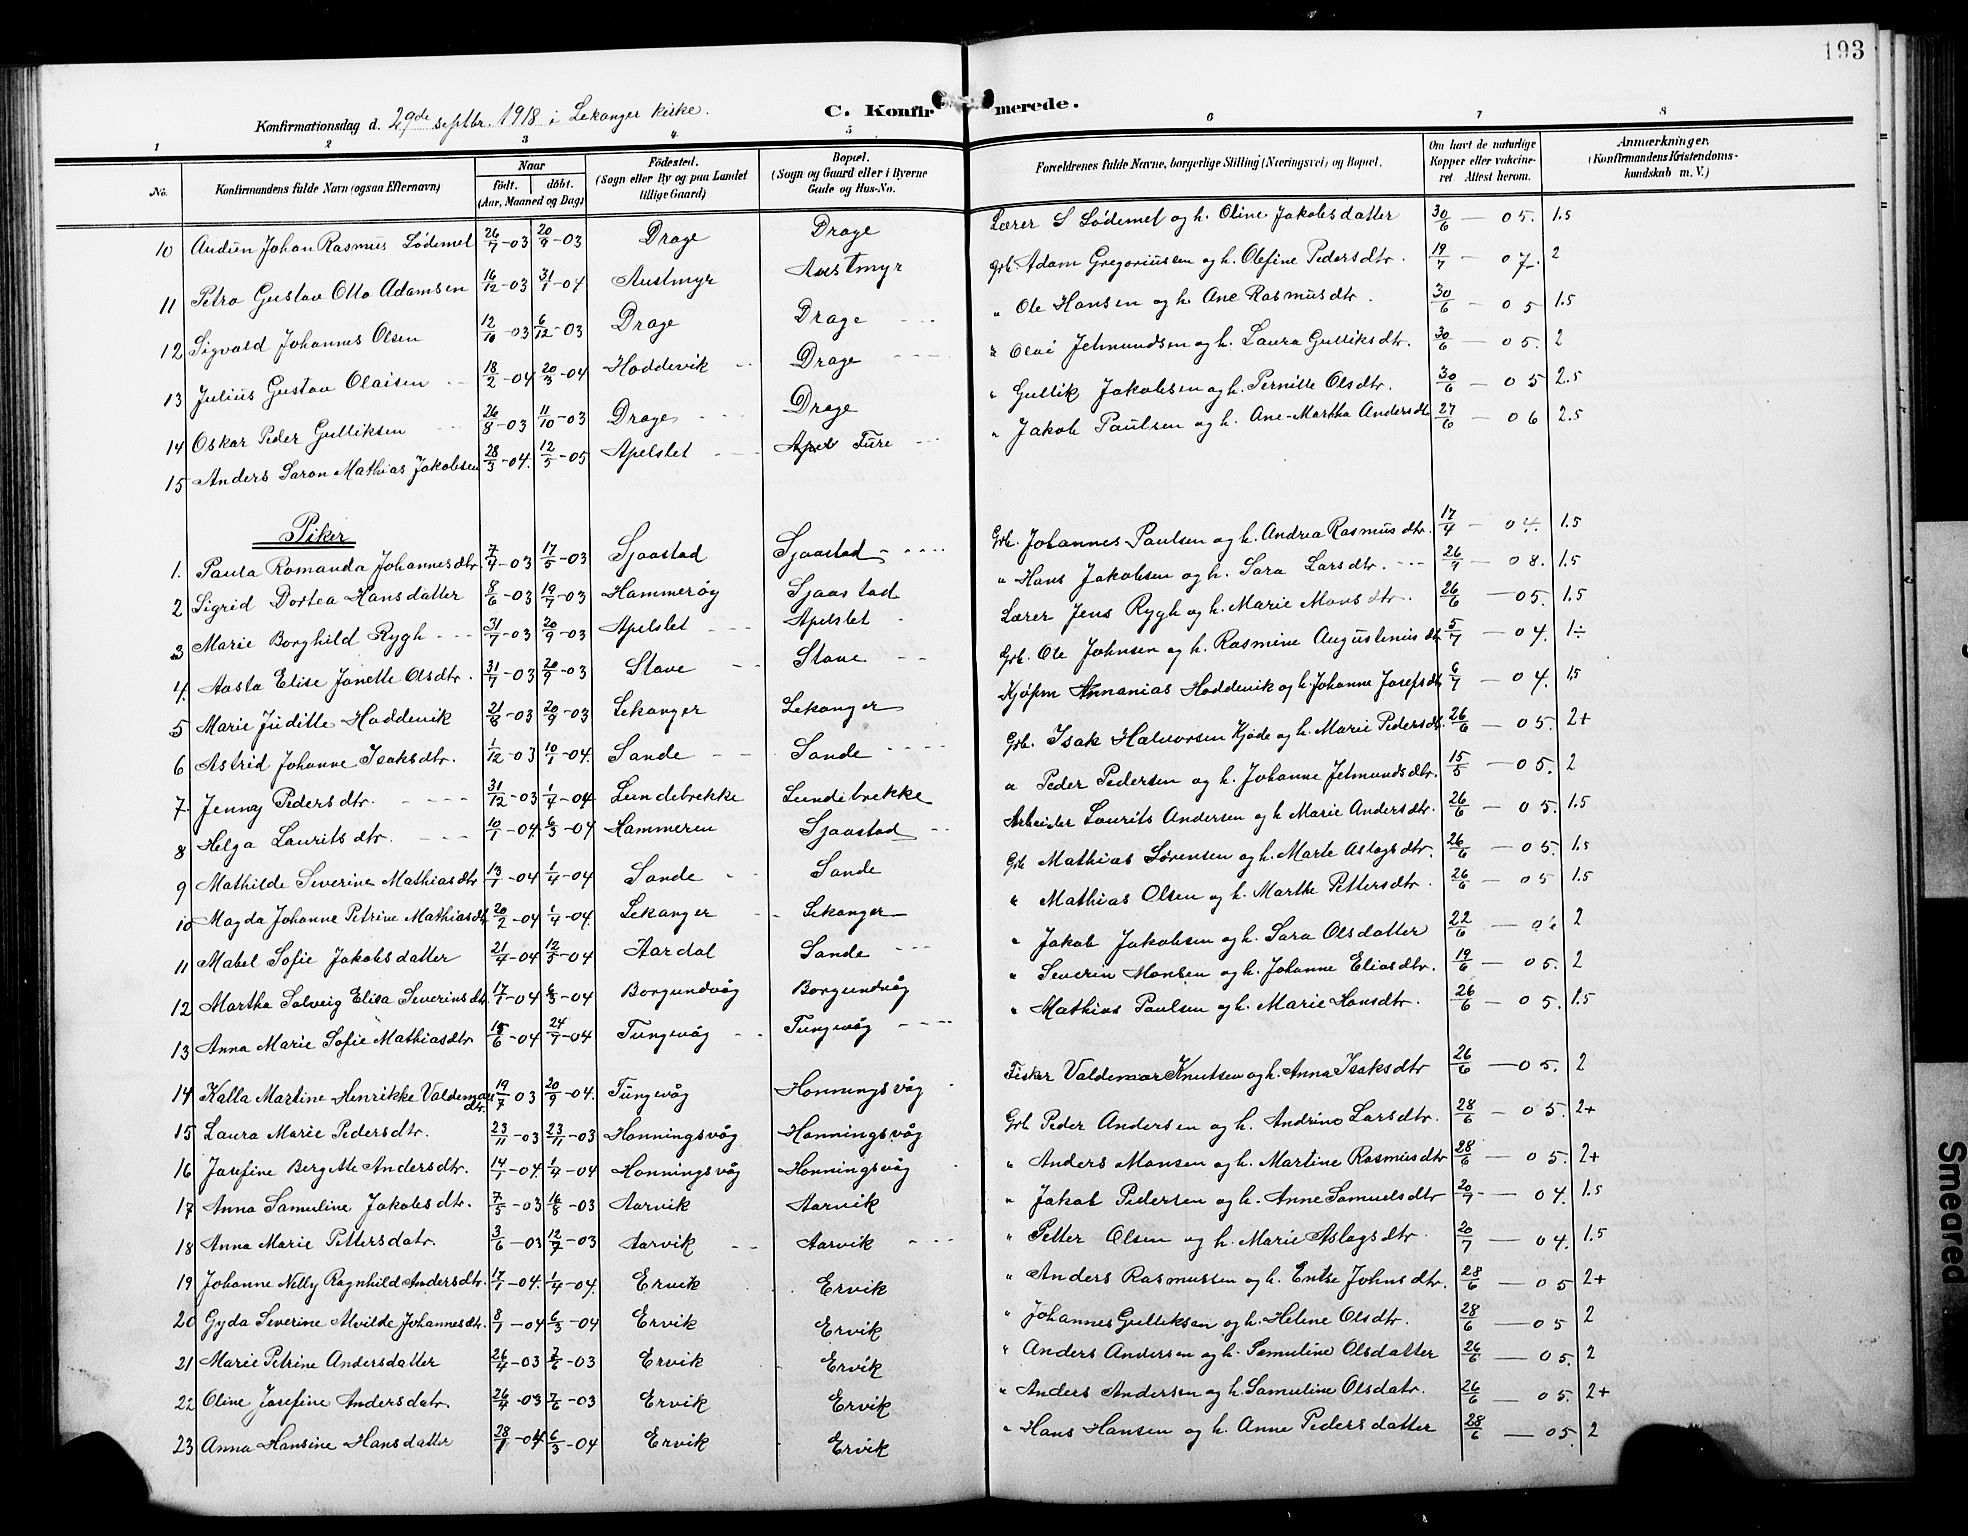 193
Konfirmationsdag d. 29de septbr. 1918 i Lekanger kirke. C. Konfirmerede.
1 2 3 4 5 6 7 8
No. Konfirmandens fulde Navn (ogsaa Efternavn) Naar födt. döbt. (Aar, Maaned og Dag) Födested. (Sogn eller By og paa Landet tillige Gaard) Bopæl. (Sogn og Gaard eller i Byerne Gade og Hus-No. Forældrenes fulde Navne, borgerlige Stilling (Næringsvei) og Bopæl. Om havt de naturlige Kopper eller vakcineret Attest herom. Anmærkninger. (Konfirmandens Kristendomskundskab m. V.)
10 Andun Johan Rasmus Lødemel 26/7-03 20/9-03 Drage Drage Lærer S Lødemel og h. Oline Jakobsdatter 30/6 - 05. 1.5
11 Petra Gustav Otto Adamsen 16/12-03 31/1-04 Austmyr Austmyr Grb. Adam Gregoriussen og h. Olefine Pedersdtr. 19/7 - 07. 2
12 Sigvald Johannes Olsen 12/10-03 6/12-03 Drage Drage " Ole Hansen og h. Ane Rasmusdtr. 30/6 - 05 1.5
13 Julius Gustav Olaisen 18/2-04 20/3-04 Hoddevik Drage " Olai Jetmundsen og h. Laura Gulliksdtr. 30/6 - 05. 2
14 Oskar Peder Gulliksen 26/8-03 11/10-03 Drage Drage " Gullik Jakobsen og h. Pernille Olsdtr. 30/6 - 05 2.5
15 Anders Saron Mathias Jakobsen 28/3-04. 12/5-05 Apelslet Fure " Jakob Paulsen og h. Ane-Martha Andersdtr 27/6 - 06 2.5
Piker
1. Paula Romanda Johannesdtr. 7/4-03 17/5-03 Sjaastad Sjaastad Grb. Johannes Paulsen og h. Andrea Rasmusdtr. 17/4 - 04. 1.5
2 Sigrid Dortea Hansdatter 8/6-03 19/7-03 Hammerøy Sjaastad " Hans Jakobsen og h. Sara Larsdtr. 26/7 - 08. 1.5
3 Marie Borghild Rygh 31/7-03 20/9-03 Apelslet Apelslet Lærer Jens Rygh og h. Marie Monsdtr. 26/6 - 05. 1.5
4. Aasta Elise Janette Olsdtr. 31/7-03 20/9-03 Stave Stave Grb. Ole Johnsen og h. Rasmine Augustinusdtr 5/7 - 04. 1÷
5 Marie Juditte Hoddevik 21/8-03 20/9-03 Lekanger Lekanger Kjøpm Annanias Hoddevik og h. Johanne Josefsdtr 6/7 - 04. 1.5
6 Astrid Johanne Isaksdtr. 1/12-03 10/1-04. Sande Sande Grb. Isak Halvorsen Kjøde og h. Marie Pedersdtr. 26/6 - 05. 2+
7. Jenny Pedersdtr. 31/12-03 1/4-04 Lundebrekke Lundebrekke " Peder Pedersen og h. Johanne Jetmundsdtr. 15/5 - 05. 2
8 Helga Lauritsdtr. 10/1-04. 6/3-04 Hammeren Sjaastad Arbeider Laurits Andersen og h Marie Andersdtr. 26/6 - 05. 1.5
9 Mathilde Severine Mathiasdtr 13/1-04 1/4-04 Sande Sande Grb Mathias Sørensen og h. Marte Aslagsdtr. 26/6 - 05. 1.5
10 Magda Johanne Petrine Mathiasdtr 20/2-04 1/4-04. Lekanger Lekanger " Mathias Olsen og h. Marthe Pettersdtr. 26/6 - 05 1.5
11 Mabel Sofie Jakobsdatter 21/4-04 12/5-04 Aardal Sande " Jakob Jakobsen og h. Sara Olsdatter 22/6 - 2
12 Martha Solveig Elisa Severinsdtr 17/1-04 6/3-04 Borgundvåg Borgundvåg " Severin Monsen og h. Johanne Eliasdtr. 19/6 - 05. 2
13 Anna Marie Sofie Mathiasdtr. 15/6-04 24/7-04 Tungevåg Tungevåg " Mathias Paulsen og h. Marie Hansdtr. 26/6 - 05. 1.5
14 Kalla Martine Henrikke Valdemarsdtr. 19/7-03 20/9-04. Tungevåg Honningsvåg Fisker Valdemar Knutsen og h. Anna Isaksdtr 26/6 - 05. 2
15 Laura Marie Pedersdtr. 23/11-03 23/11-03 Honningsvåg Honningsvåg Grb Peder Andersen og h. Andrine Larsdtr. 28/6 - 05. 2+
16 Josefine Bergitte Andersdtr. 14/1-04. 1/4-04 Honningsvåg Honningsvåg " Anders Monsen og h. Martine Rasmusdtr 28/6 - 05. 2+
17 Anna Samuline Jakobsdtr. 7/5-03 16/8-03 Aarvik Aarvik " Jakob Pedersen og h. Anne Samuelsdtr 20/7 - 04. 1.5
18 Anna Marie Pettersdatr. 3/6-03 12/7-03 Aarvik Aarvik " Petter Olsen og h. Marie Aslagsdtr. 20/7 - 04. 1.5
19 Johanne Nelly Ragnhild Andersdtr. 17/1-04. 1/4-04. Ervik Ervik " Anders Rasmussen og h. Entse Johnsdtr. 28/6 - 05 2+
20 Gyda Severine Alvilde Johannesdtr. 8/1-04 6/3-04 Ervik Ervik " Johannes Gulliksen og h. Helene Olsdtr. 28/6 - 05 2
21 Marie Petrine Andersdatter 26/4-03 7/6-03 Ervik Ervik " Anders Andersen og h. Samuline Olsdatter 26/6 - 05. 2
22 Oline Josefine Andersdatr. 26/4-03 7/6-03 Ervik Ervik " Anders Andersen og h. Samuline Olsdatr. 26/6 - 05. 2+
23 Anna Hansine Hansdatter 28/1-04 6/3-04 Ervik Ervik " Hans Hansen og h. Anne Pedersdatter 28/6 - 05 2
Smeared